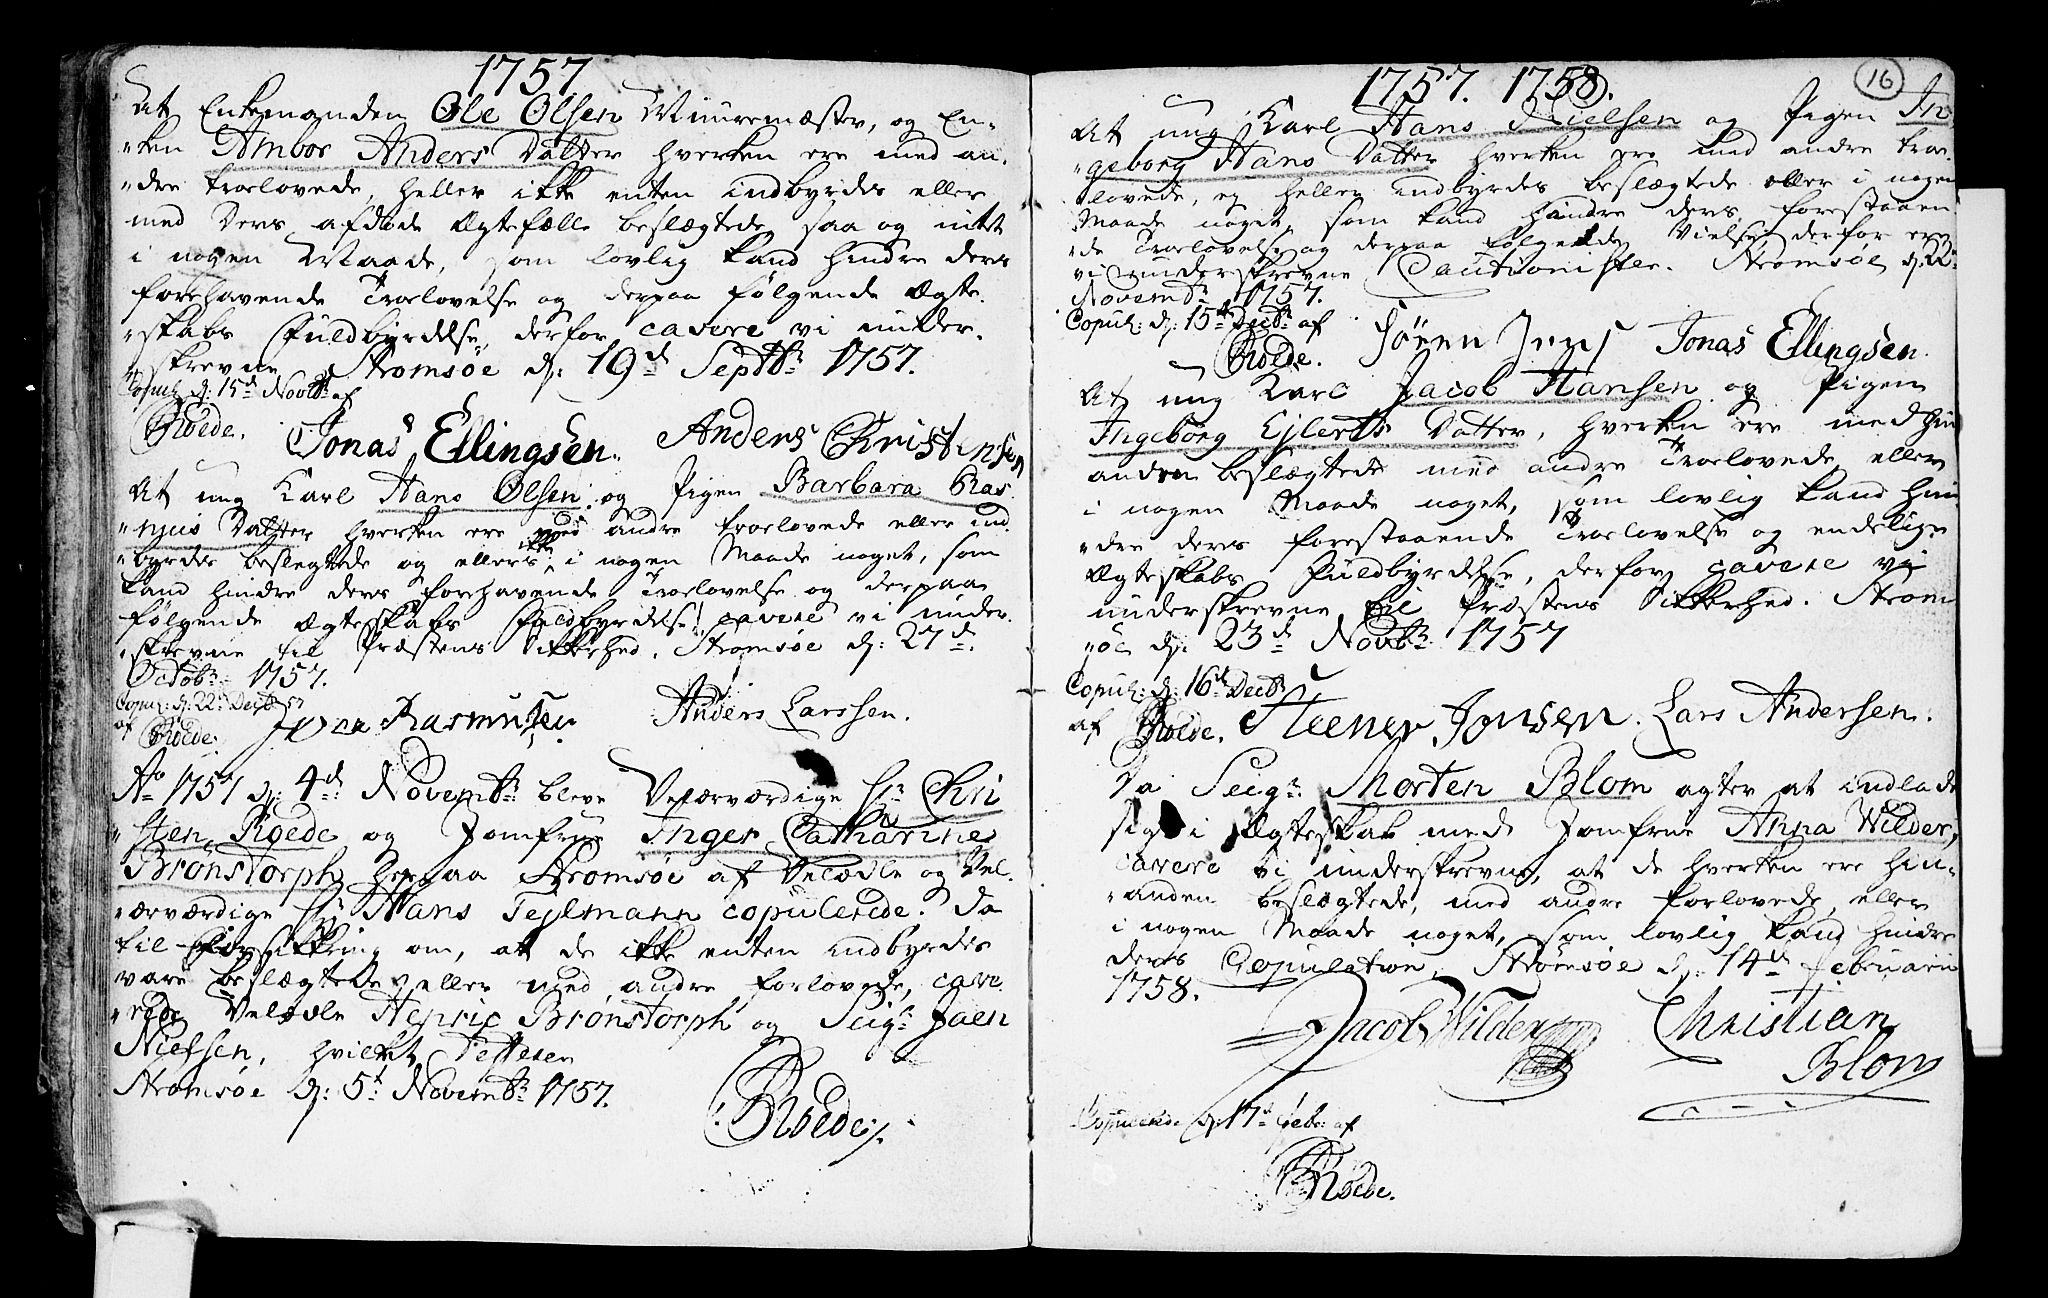 1757
At Enkemanden Ole Olsen Muuremæster, og En-
"ken Ambor Anders Datter hverken ere med an-
"dre troelovede, heller ikke enten indbyrdes eller
med Ders afdøde Ægtefælle beslægtede, saa og intet
i nogen Maade, som lovlig kand hindre deres
forehavende Troelovelse og derpaa følgende Ægte-
"skabs Fuldbyrdelse, derfor cavere vi under-
"skrevne Strømsøe d: 19d Septbr 1757.
Copul: d: 15d Novbr af
Roede. Jonas Ellingsen. Anders Christensen
At ung Karl Hans Olsen og Pigen Barbara Ras-
"mus Datter hverken ere med andre troelovede eller ind-
"byrdes beslegtede og ellers ikke i nogen Maade noget, som
kand hindre deres forehavende Troelovelse og derpaa
følgende ægteskabs Fuldbyrdelse, cavere vi under-
"skrevne til Præstens Sikkerhed. Strømsøe d: 27d
Octobr: 1757.
Copul: d: 22d Decbr 57
af Roede. Iver Rasmusen Anders Larssen.
Ao 1757 d: 4d: Novembr: bleve Velærværdige Hr Chri
"sten Roede og Jomfrue Inger Catharine
Brønstorph her paa Strømsøe af Velædle og Vel-
"ærværdige Hr Hans Tejlmann copulerede. Da
til Forsikkring om, at de ikke enten indbyrdes
vare beslægtede eller med andre forlovede, cave-
"rede Velædle Henric Brønstorph og Seigr Jaen
Nielsen, hvilket Testerer
Strømsøe d: 5t Novembr 1757.
Roede
1757. 1758.
16
At ung Karl Hans Nielsen og Pigen In
"geborg Hans Datter hverken ere med andre troe-
lovede, ej heller indbyrdes beslægtede eller i nogen
Maade noget, som kand hindre deres forestaaen
"de Troelovelse og derpaa følgende Vielse, derfor ere
vi underskrevne Cautionister. Strømsøe d: 22
Novembr 1757.
Copul: d: 15d Decbr af
Roede. Sören Jens Jonas Ellingsen.
At ung Karl Jacob Hansen og Pigen
Ingeborg Ejlerts Datter, hverken ere med hin
anden beslægtede med andre Troelovede, eller
i nogen Maade noget, som lovlig kand hin
"dre deres forestaaende Troelovelse og endelige
Ægteskabs Fuldbyrdelse, derfor cavere vi
underskrevne til Præstens Sikkerhed. Strøm
"søe d: 23d Novbr 1757
Copul: d: 16d Decbr
af Roede. Steener Jonsen. Lars Andersen.
Da Seigr: Morten Blom agter at indlade
sig i Ægteskab med Jomfrue Anna Wilder,
cavere vi underskrevne, at de hverken ere hin-
"anden beslægtede, med andre forlovede, eller
i nogen Maade noget, som lovlig kand hindre
deres Copulation. Strømsøe d: 14d Februarii
1758.
Jacob Wilder Christian
Blom
Copulerede d: 17d Febr: af
Roede.